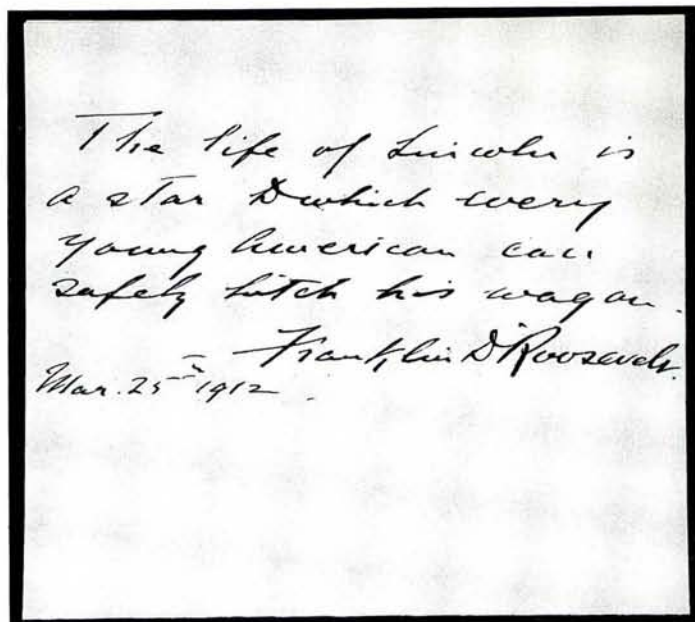 The life of Lincoln is
a star to which every
young American can
safely hitch his wagon.
Franklin D. Roosevelt.
Mar. 25th 1912.